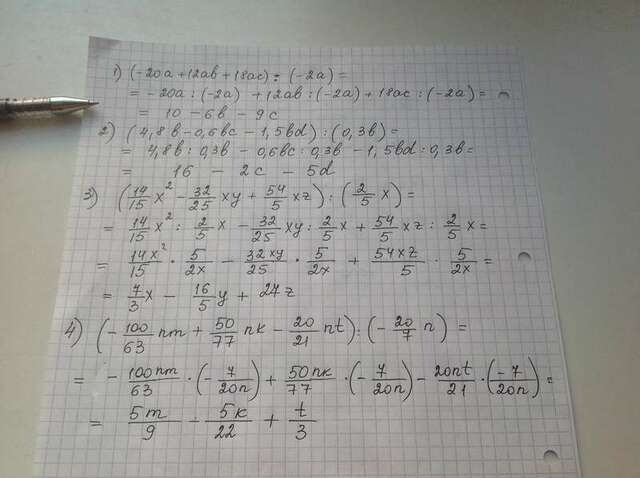 1) (-20a + 12ab + 18ac) : (-2a) =
= -20a : (-2a) + 12ab : (-2a) + 18ac : (-2a) =
= 10 - 6b - 9c
2) (4,8b - 0,6bc - 1,5bd) : (0,3b) =
= 4,8b : 0,3b - 0,6bc : 0,3b - 1,5bd : 0,3b =
= 16 - 2c - 5d
3) (14/15 x² - 32/25 xy + 54/5 xz) : (2/5 x) =
= 14/15 x² : 2/5 x - 32/25 xy : 2/5 x + 54/5 xz : 2/5 x =
= 14x²/15 · 5/2x - 32xy/25 · 5/2x + 54xz/5 · 5/2x =
= 7/3 x - 16/5 y + 27z
4) (-100/63 nm + 50/77 nk - 20/21 nt) : (-20/7 n) =
= -100nm/63 · (-7/20n) + 50nk/77 · (-7/20n) - 20nt/21 · (-7/20n) =
= 5m/9 - 5k/22 + t/3